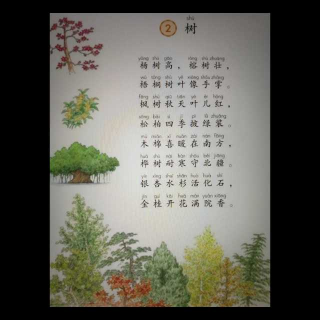 shù
② 树
yáng shù gāo róng shù zhuàng
杨树高，榕树壮，
wú tóng shù yè xiàng shǒu zhǎng
梧桐树叶像手掌。
fēng shù qiū tiān yè ér hóng
枫树秋天叶儿红，
sōng bǎi sì jì pī lǜ zhuāng
松柏四季披绿装。
mù mián xǐ nuǎn zài nán fāng
木棉喜暖在南方，
huà shù nài hán shǒu běi jiāng
桦树耐寒守北疆。
yín xìng shuǐ shān huó huà shí
银杏水杉活化石，
jīn guì kāi huā mǎn yuàn xiāng
金桂开花满院香。